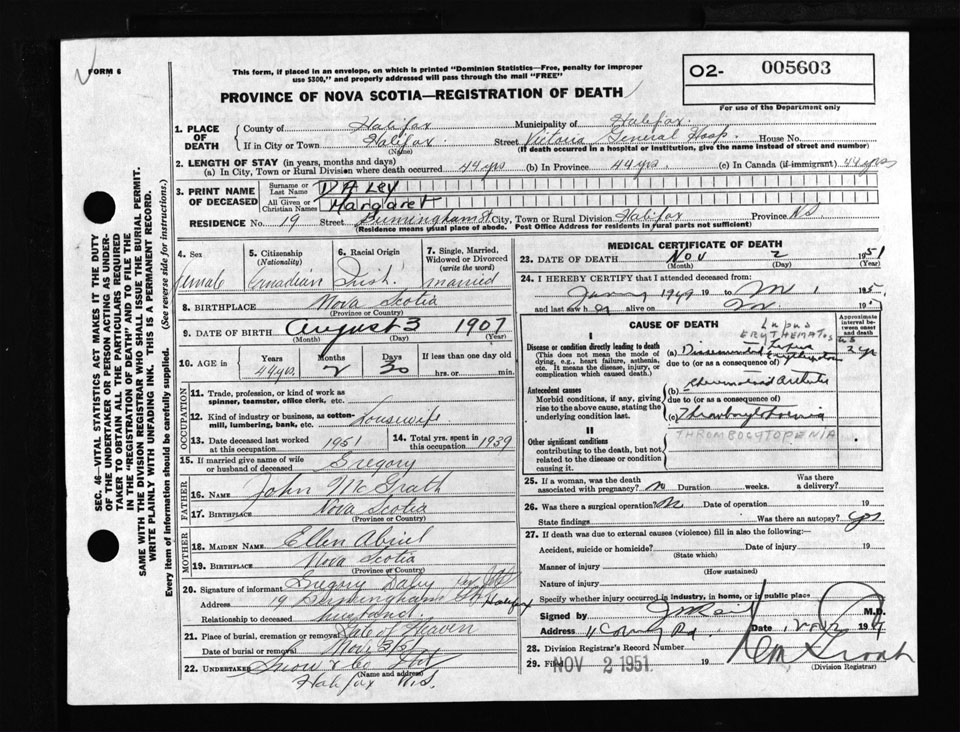 FORM 6
This form, if placed in an envelope, on which is printed "Dominion Statistics—Free, penalty for improper
use $300," and properly addressed will pass through the mail "FREE"
PROVINCE OF NOVA SCOTIA—REGISTRATION OF DEATH
O2- 005603
For use of the Department only
SEC. 46—VITAL STATISTICS ACT MAKES IT THE DUTY
OF THE UNDERTAKER OR PERSON ACTING AS UNDER-
TAKER TO OBTAIN ALL THE PARTICULARS REQUIRED
IN THE "REGISTRATION OF DEATH" AND TO FILE THE
SAME WITH THE DIVISION REGISTRAR WHO SHALL ISSUE THE BURIAL PERMIT.
WRITE PLAINLY WITH UNFADING INK. THIS IS A PERMANENT RECORD.
Every item of information should be carefully supplied. (See reverse side for instructions.)
1. PLACE OF DEATH
County of Halifax Municipality of Halifax
If in City or Town Halifax Street Victoria General Hosp. House No.
(Name) (If death occurred in a hospital or institution, give the name instead of street and number)
2. LENGTH OF STAY (in years, months and days)
(a) In City, Town or Rural Division where death occurred 44 yrs (b) In Province 44 yrs. (c) In Canada (if immigrant) 44 yrs
3. PRINT NAME OF DECEASED
Surname or Last Name DALEY
All Given or Christian Names Margaret
RESIDENCE No. 19 Street Birmingham St City, Town or Rural Division Halifax Province N.S
(Residence means usual place of abode. Post Office Address for residents in rural parts not sufficient)
4. Sex female
5. Citizenship (Nationality) Canadian
6. Racial Origin Irish
7. Single, Married, Widowed or Divorced (write the word) married
8. BIRTHPLACE Nova Scotia
(Province or Country)
9. DATE OF BIRTH August 3 1907
(Month) (Day) (Year)
10. AGE in Years Months Days If less than one day old
44 yrs. 2 30 hrs. or min.
OCCUPATION
11. Trade, profession, or kind of work as spinner, teamster, office clerk, etc.
12. Kind of industry or business, as cotton-mill, lumbering, bank, etc. Housewife
13. Date deceased last worked at this occupation 1951 14. Total yrs. spent in this occupation 1939
15. If married give name of wife or husband of deceased Gregory
FATHER
16. NAME John McGrath
17. BIRTHPLACE Nova Scotia
(Province or Country)
MOTHER
18. MAIDEN NAME Ellen
19. BIRTHPLACE Nova Scotia
(Province or Country)
20. Signature of informant Gregory Daley
Address 19 Birmingham St Halifax
Relationship to deceased husband
21. Place of burial, cremation or removal Gate of Heaven
Date of burial or removal Nov 5/51
22. UNDERTAKER Snow & Co
(Name and address)
Halifax N.S.
MEDICAL CERTIFICATE OF DEATH
23. DATE OF DEATH Nov 2 1951
(Month) (Day) (Year)
24. I HEREBY CERTIFY that I attended deceased from:
1949 19 to 195
and last saw h alive on 19
CAUSE OF DEATH
Approximate interval between onset and death
Lupus
ERYTHEMATOSUS
Disease or condition directly leading to death
(This does not mean the mode of dying, e.g., heart failure, asthenia, etc. It means the disease, injury, or complication which caused death.)
(a) Disseminated Lupus Erythematosus 2 yr
due to (or as a consequence of)
Antecedent causes
Morbid conditions, if any, giving rise to the above cause, stating the underlying condition last.
(b) Rheumatoid Arthritis
due to (or as a consequence of)
(c) Thrombocytopenia
THROMBOCYTOPENIA
II
Other significant conditions
contributing to the death, but not related to the disease or condition causing it.
25. If a woman, was the death associated with pregnancy? No Duration weeks. Was there a delivery?
26. Was there a surgical operation? No Date of operation 19
State findings Was there an autopsy? yes
27. If death was due to external causes (violence) fill in also the following:
Accident, suicide or homicide? Date of injury 19
(State which)
Manner of injury
(How sustained)
Nature of injury
Specify whether injury occurred in industry, in home, or in public place
Signed by M.D.
Address Date 19
28. Division Registrar's Record Number
29. Filed NOV 2 1951 19
(Division Registrar)